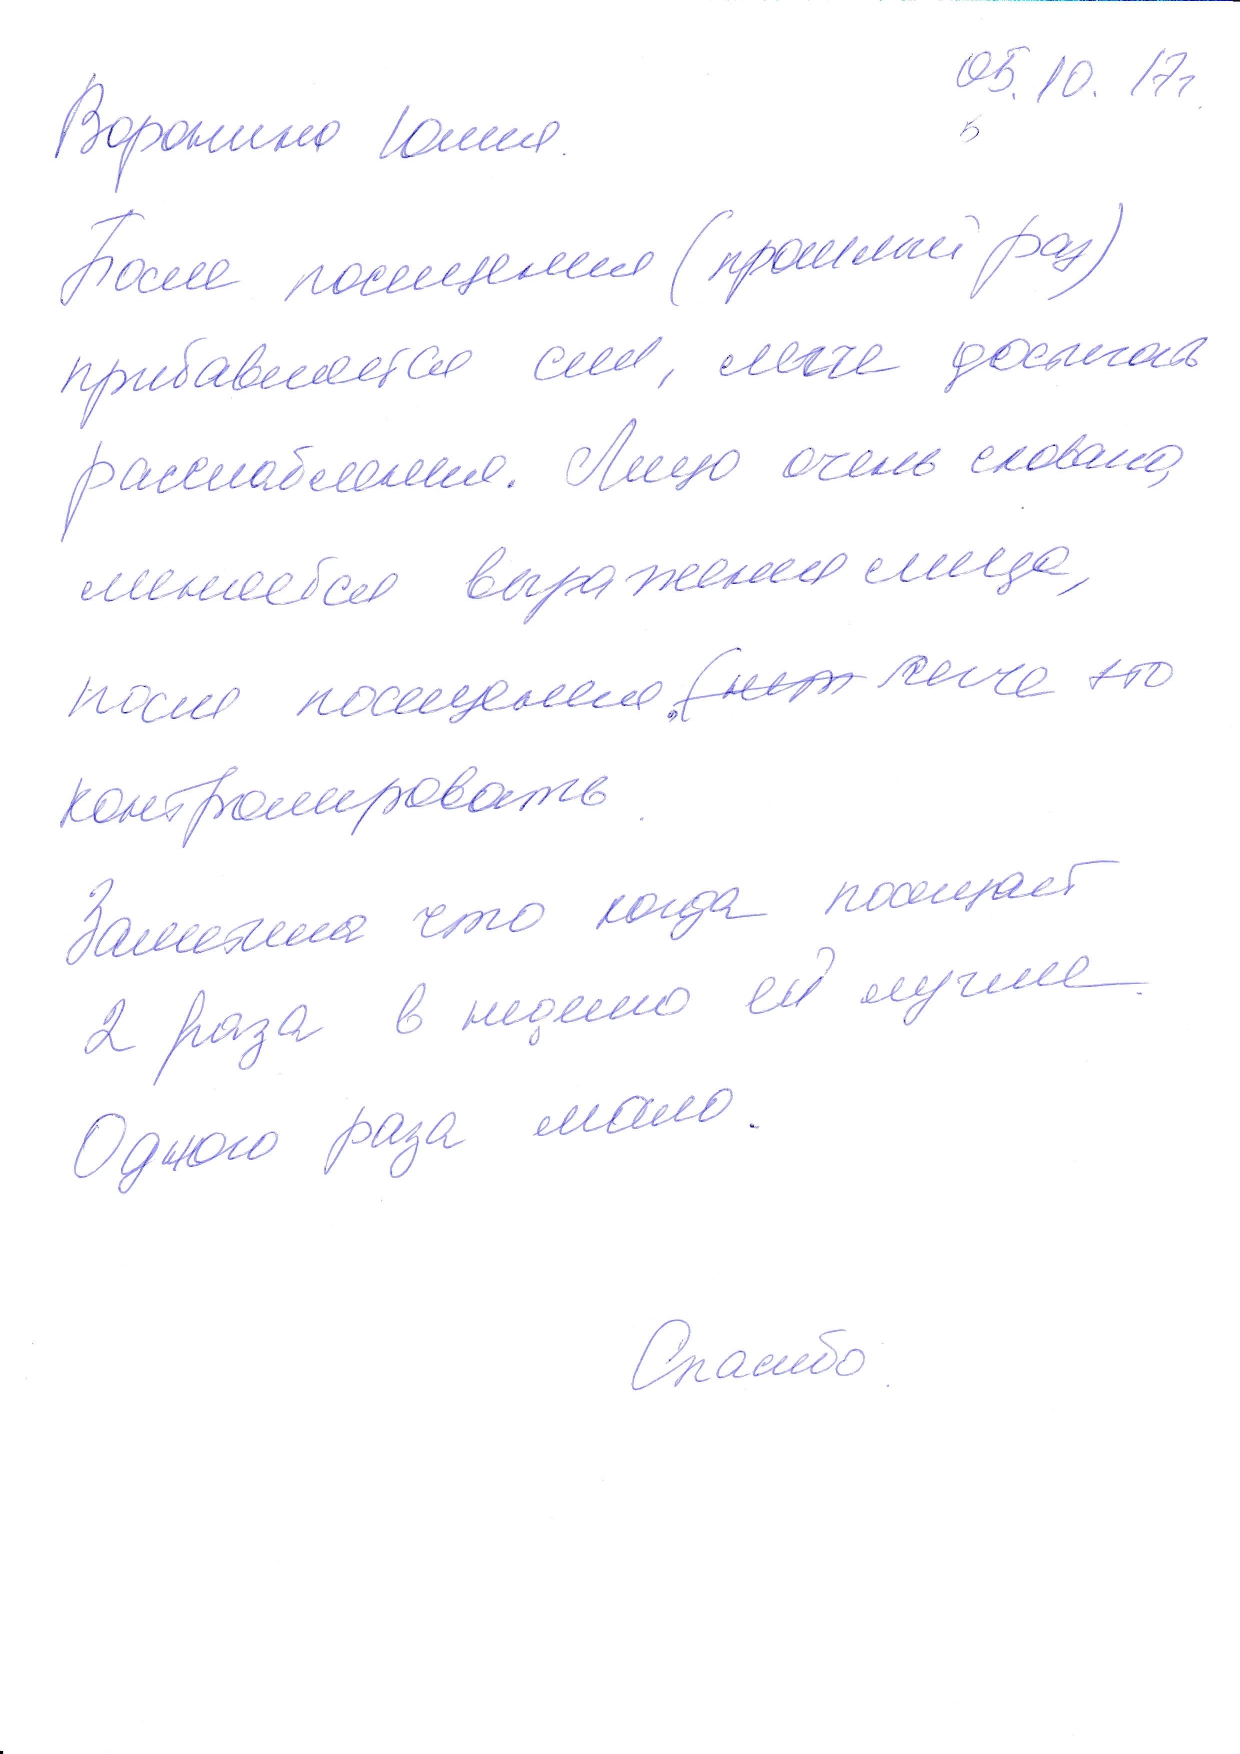 05.10.17г.
5
Воронина Юлия.
После посещения (прошлый раз)
прибавляется сил, легче достигать
расслабления. Лицо очень сковано,
меняется выражение лица,
после посещения. (нет легче это
контролировать.
Заметила что когда посещает
2 раза в неделю ей лучше.
Одного раза мало.
Спасибо.